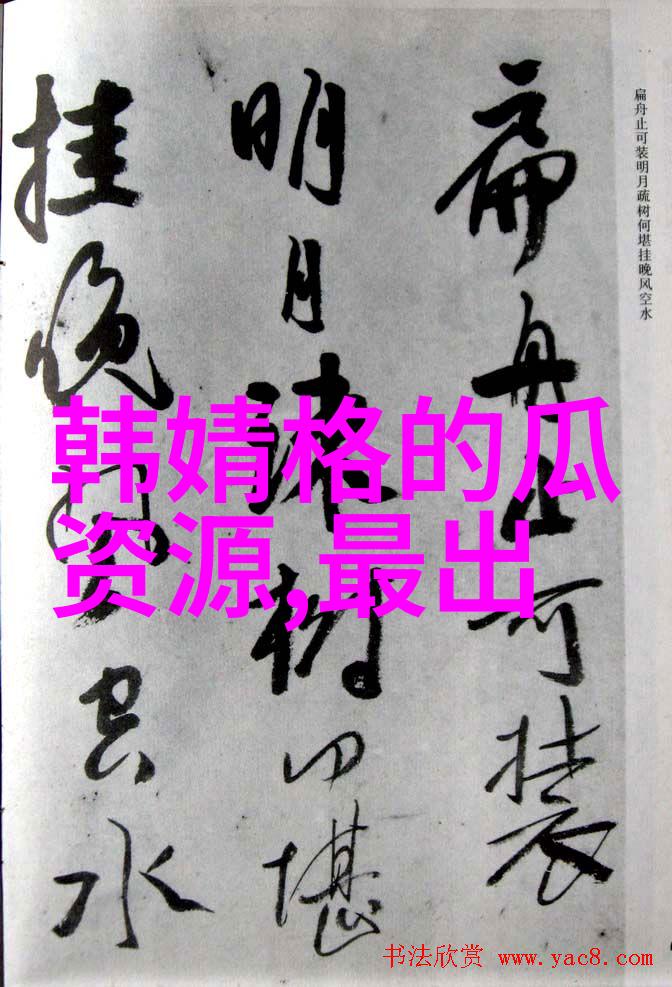 扁舟止可装
明月疏树何堪
挂晚风空水
扁舟止可装明月疏树何堪挂晚风空水
韩婧格的瓜
资源,最出
书法欣赏 www.yac8.com